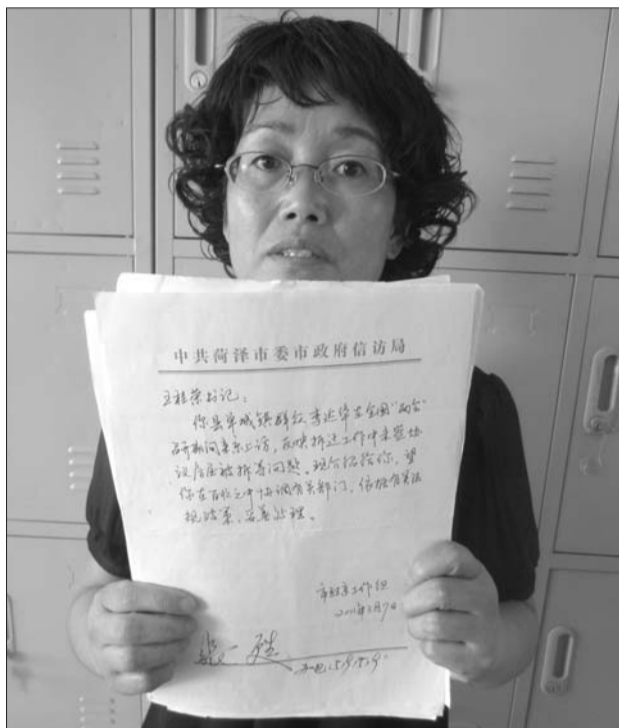 中共菏泽市委市政府信访局
书记：
你县单城镇群众李运华在全国“两会”
召开期间来京上访，反映拆迁工作中未签协
议房屋被拆等问题。现介绍给你，望
你在百忙之中协调有关部门，依据有关法
规政策，妥善处理。
市驻京工作组
3月7日